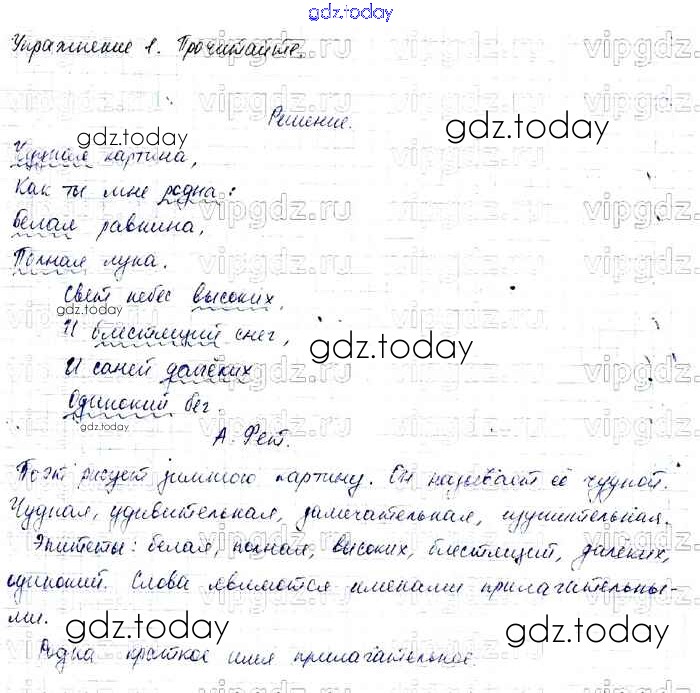 gdz.today
Упражнение 1. Прочитайте.
Решение.
Чудная картина,
Как ты мне родна:
Белая равнина,
Полная луна.
Свет небес высоких,
И блестящий снег,
И саней далёких
Одинокий бег.
А. Фет.
Поэт рисует зимнюю картину. Он называет её чудной.
Чудная, удивительная, замечательная, изумительная.
Эпитеты: белая, полная, высоких, блестящий, далёких,
одинокий. Слова являются именами прилагательны-
ми.
Родна краткое имя прилагательное.